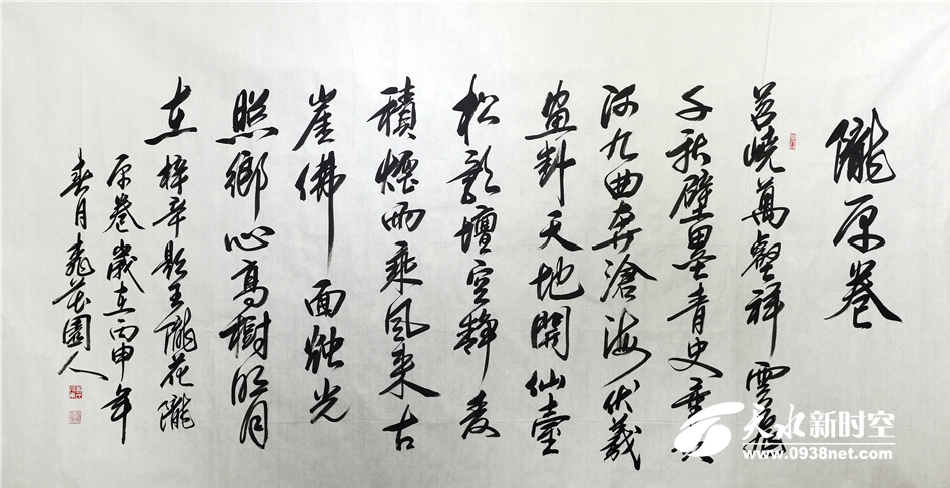 隴原卷
嶢萬壑祥雲起
千秋壁墨青史垂黃
河九曲奔滄海伏羲
畫卦天地開仙臺
松影壇空靜麥
積煙雨乘風來古
崖佛面蝕光
照鄉心高樹明月
在
梓辛題王隴花隴
原卷歲在丙申年
春月花園人
天水新时空
www.0938net.com